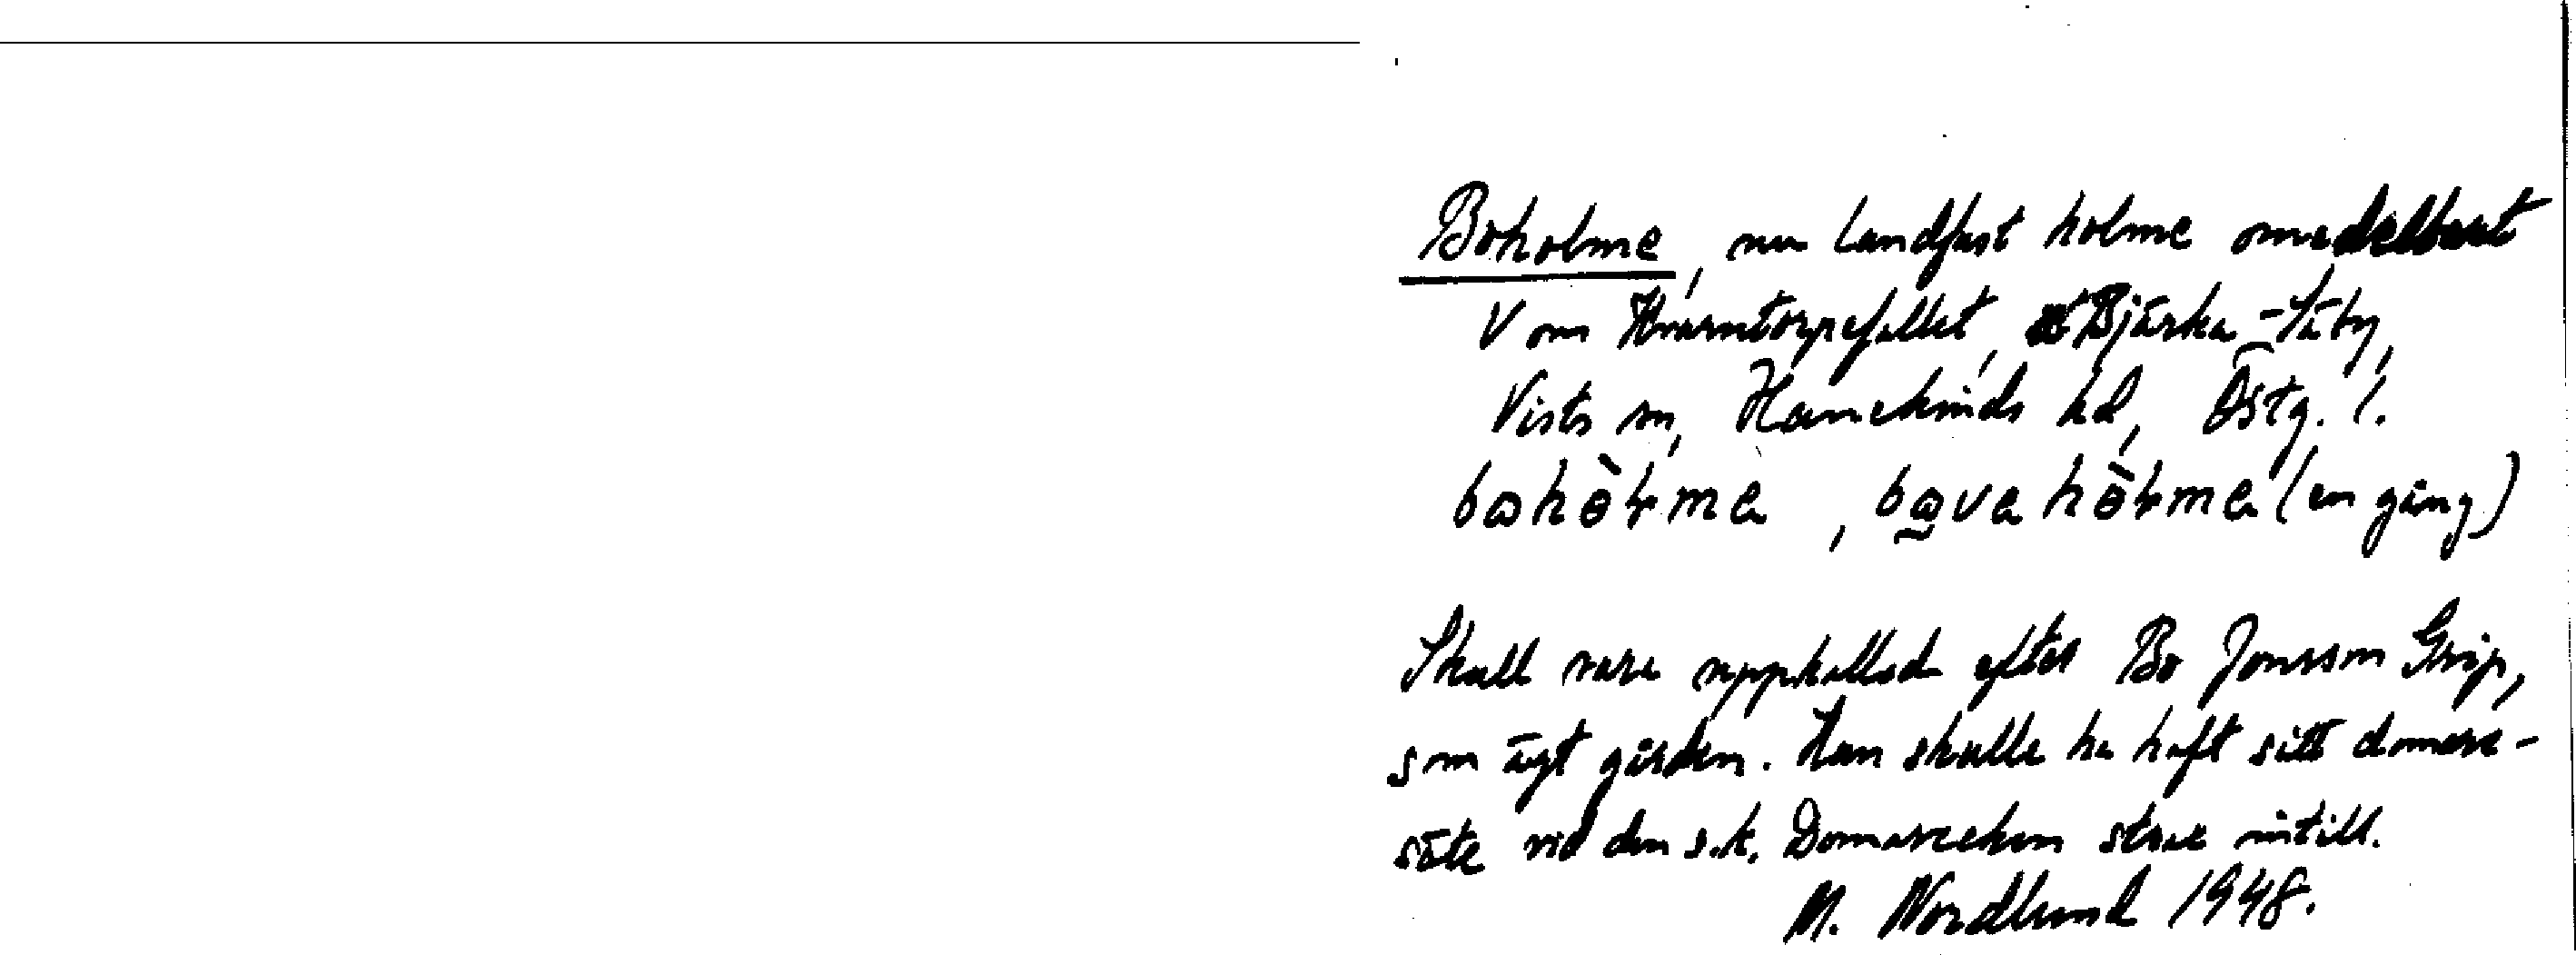 Boholme, nu landfast holme omedelbart
V om Kvarntorpefallet, Bjärka-Säby,
Vists sn, Hanekinds hd, Östg. l.
bohòłme, bove hòłme (en gång)
Skall vara uppkallad efter Bo Jonsson Grip,
som ägt gården. Han skulle ha haft sitt domare-
säte vid den s.k. Domareeken strax intill.
M. Nordlund 1948.